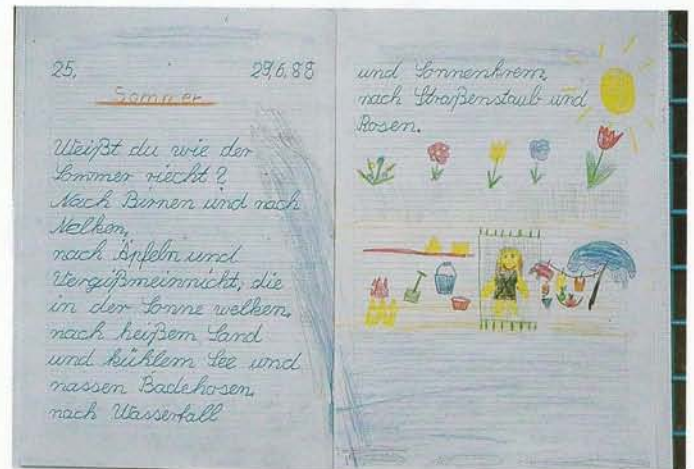 25,
29,6,88
Sommer
Weißt du wie der
Sommer riecht?
Nach Birnen und nach
Nelken,
nach Äpfeln und
Vergißmeinnicht, die
in der Sonne welken,
nach heißem Sand
und kühlem See und
nassen Badehosen,
nach Wasserfall
und Sonnenkrem,
nach Straßenstaub und
Rosen.